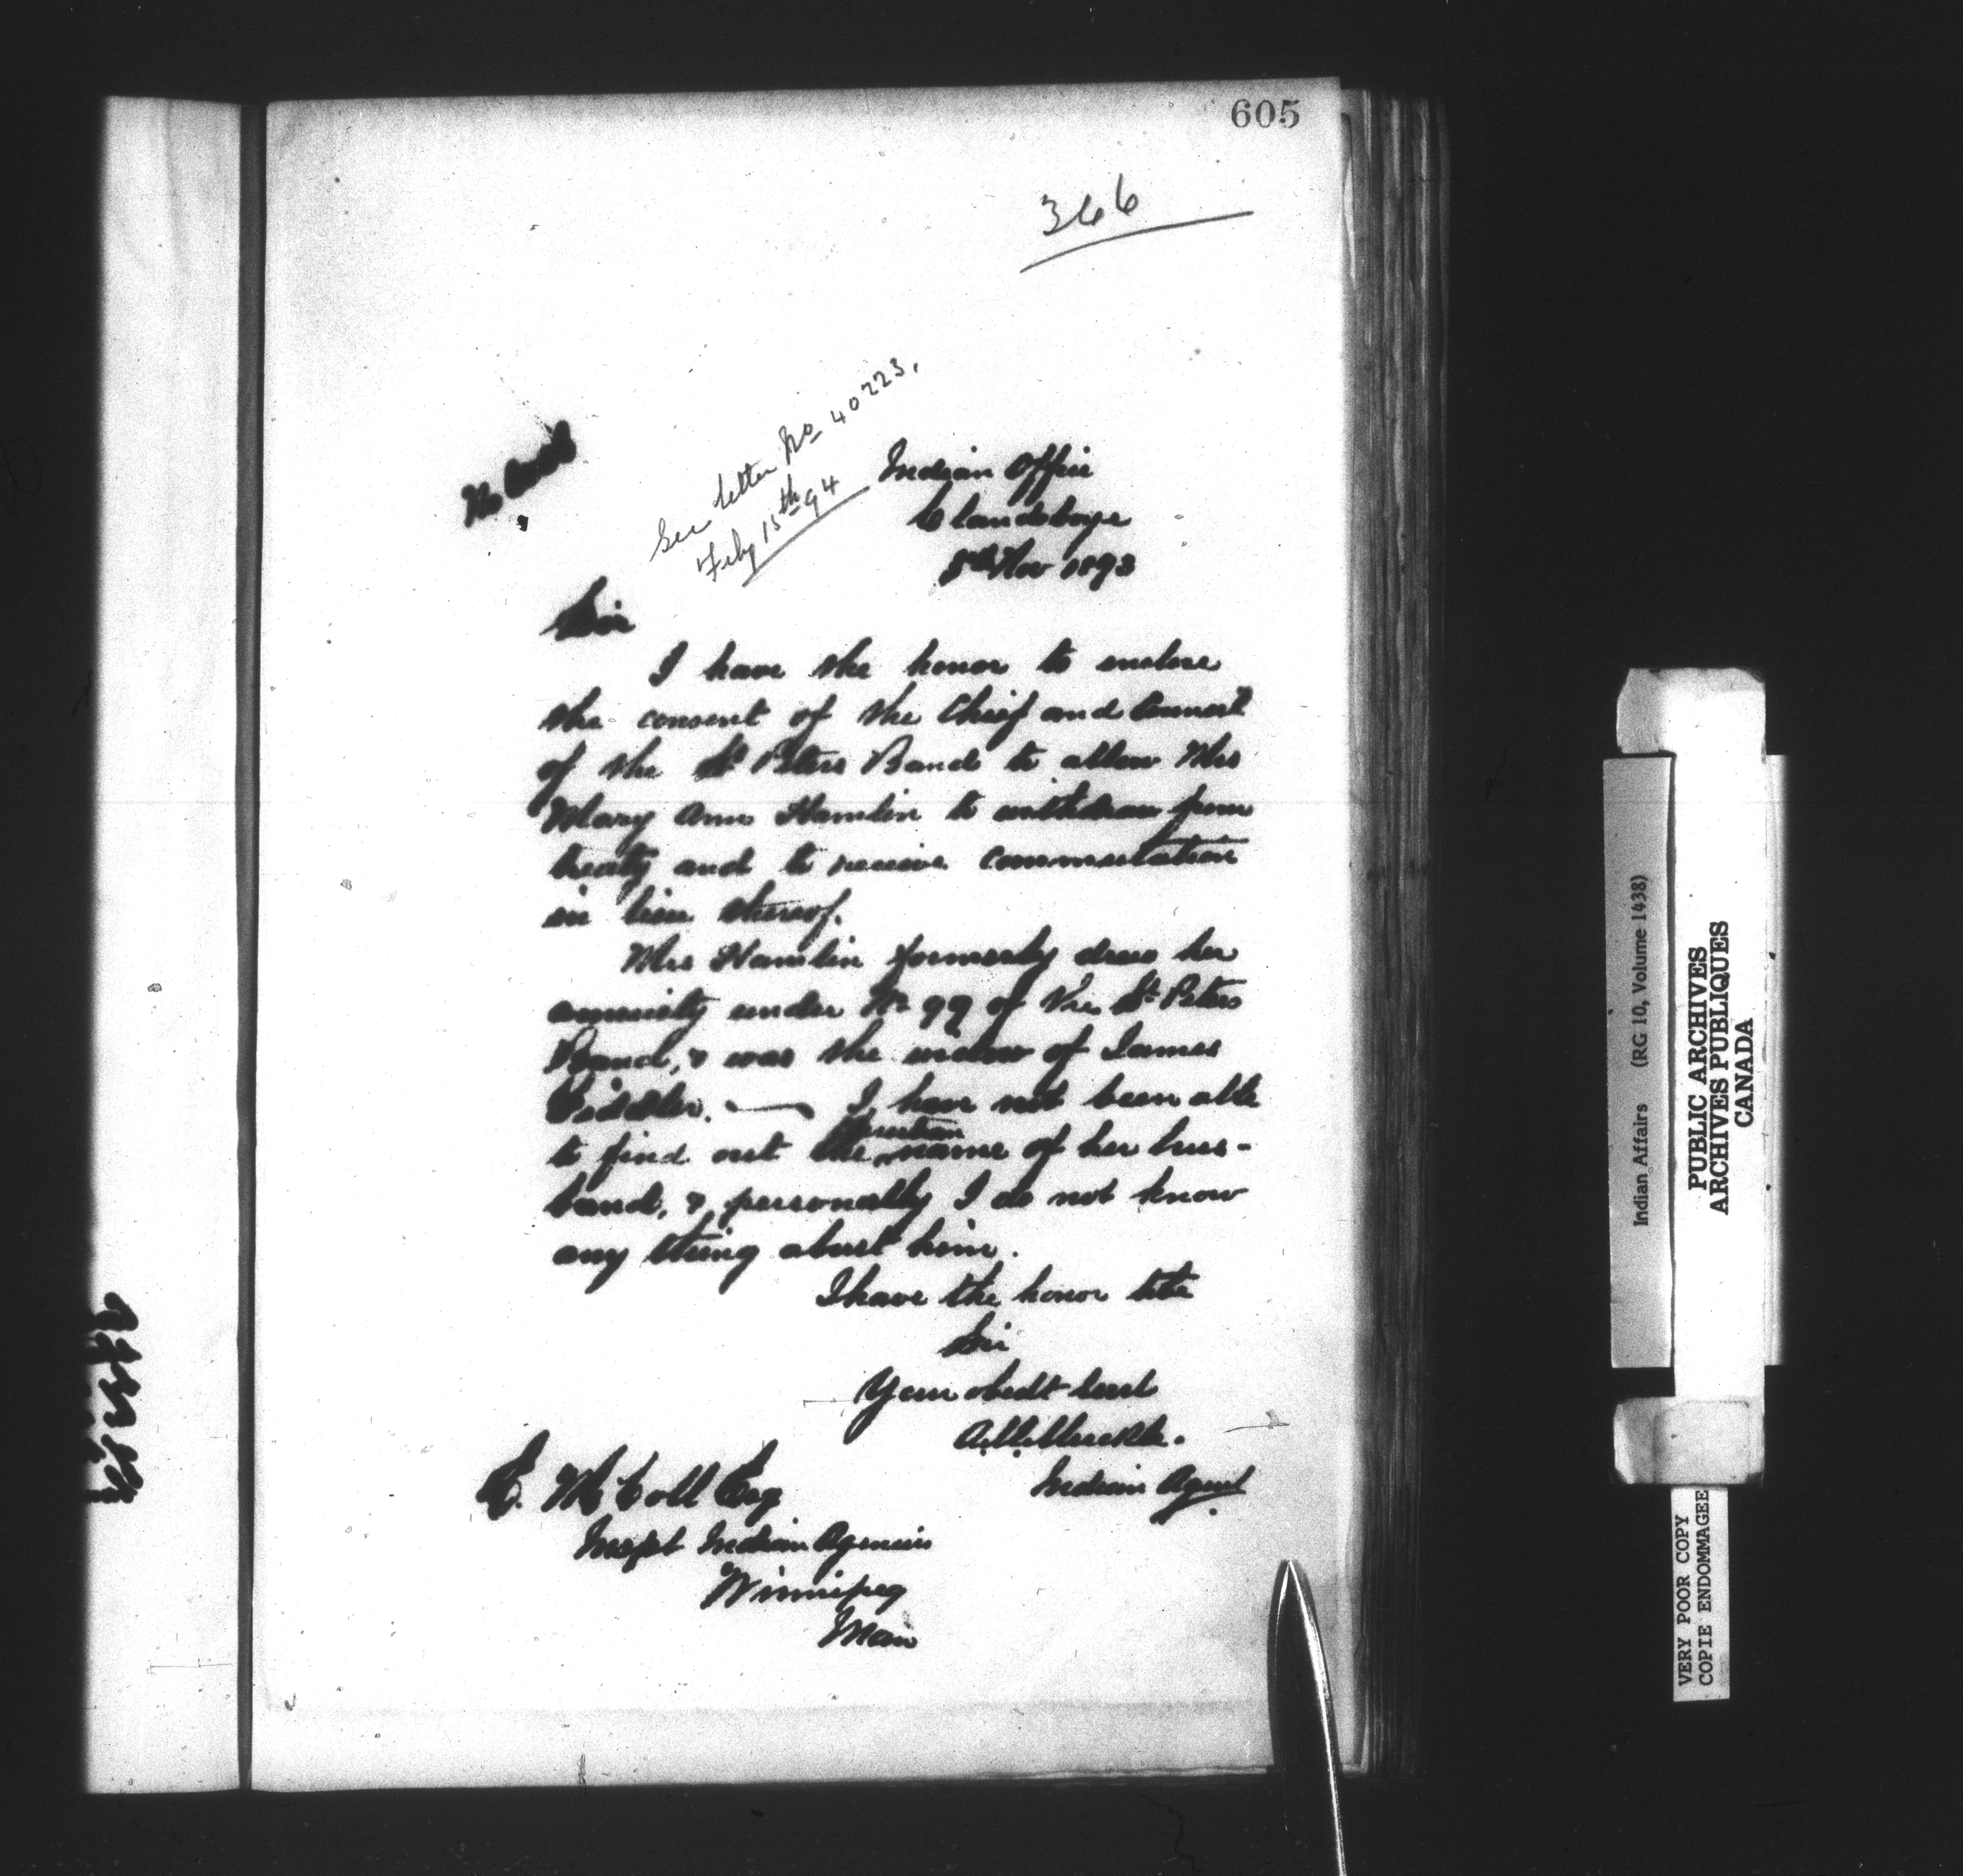 605
366
See letter No 40223.
Feby 15th 94
Indian Office
Clandeboye
8th Nov 1893
Sir
I have the honor to enclose
the consent of the Chief and Council
of the St Peters Band to allow Mrs
Mary Ann Hamlin to withdraw from
treaty and to receive commutation
in lieu thereof.
Mrs Hamlin formerly drew her
annuity under No 99 of the St Peters
Band, & was the widow of James
I have not been able
to find out the christian name of her hus-
band, & personally I do not know
any thing about him.
I have the honor to be
Sir
Your obedt Servt
A.M. Muckle.
Indian Agent
E. McColl Esq
Inspt Indian Agencies
Winnipeg
Man
Indian Affairs (RG 10, Volume 1438)
PUBLIC ARCHIVES
ARCHIVES PUBLIQUES
CANADA
VERY POOR COPY
COPIE ENDOMMAGEE